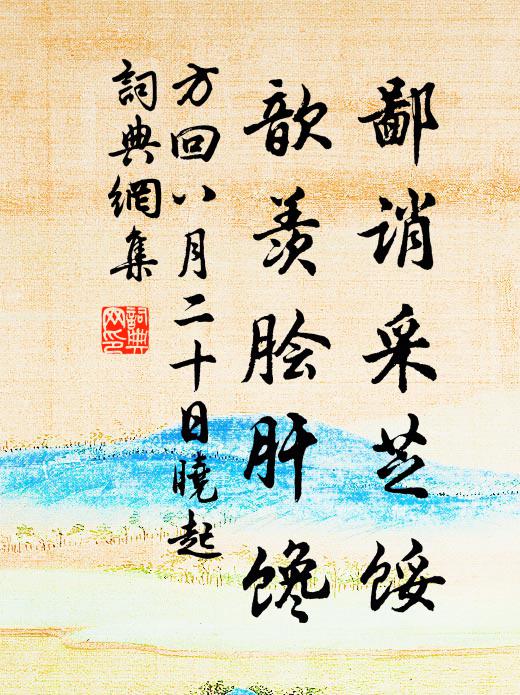 鄙诮采芝馁
歆羡脍肝馋
方回八月二十日曉起
詞典網集
詞典网印